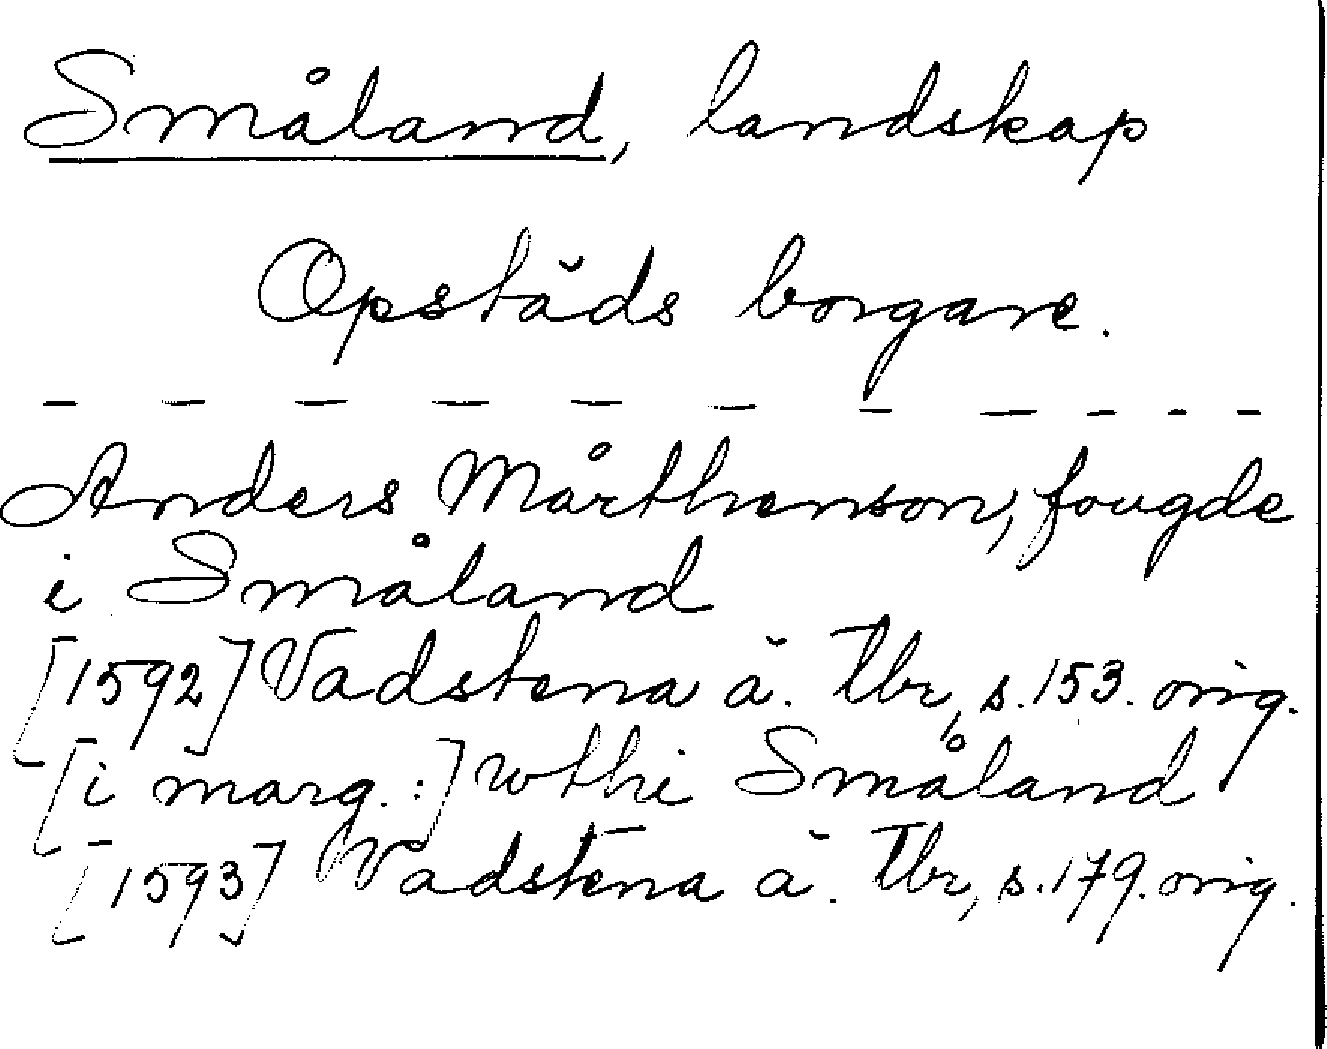 Småland, landskap
Opstäds borgare.
— — — — — — — — - - -
Anders Mårthenson, fougde
i Småland
[1592] Vadstena ä. Tbr, s. 153. orig.
[i marg. :] wthi Småland
[1593] Vadstena ä. Tbr, s. 179. orig.